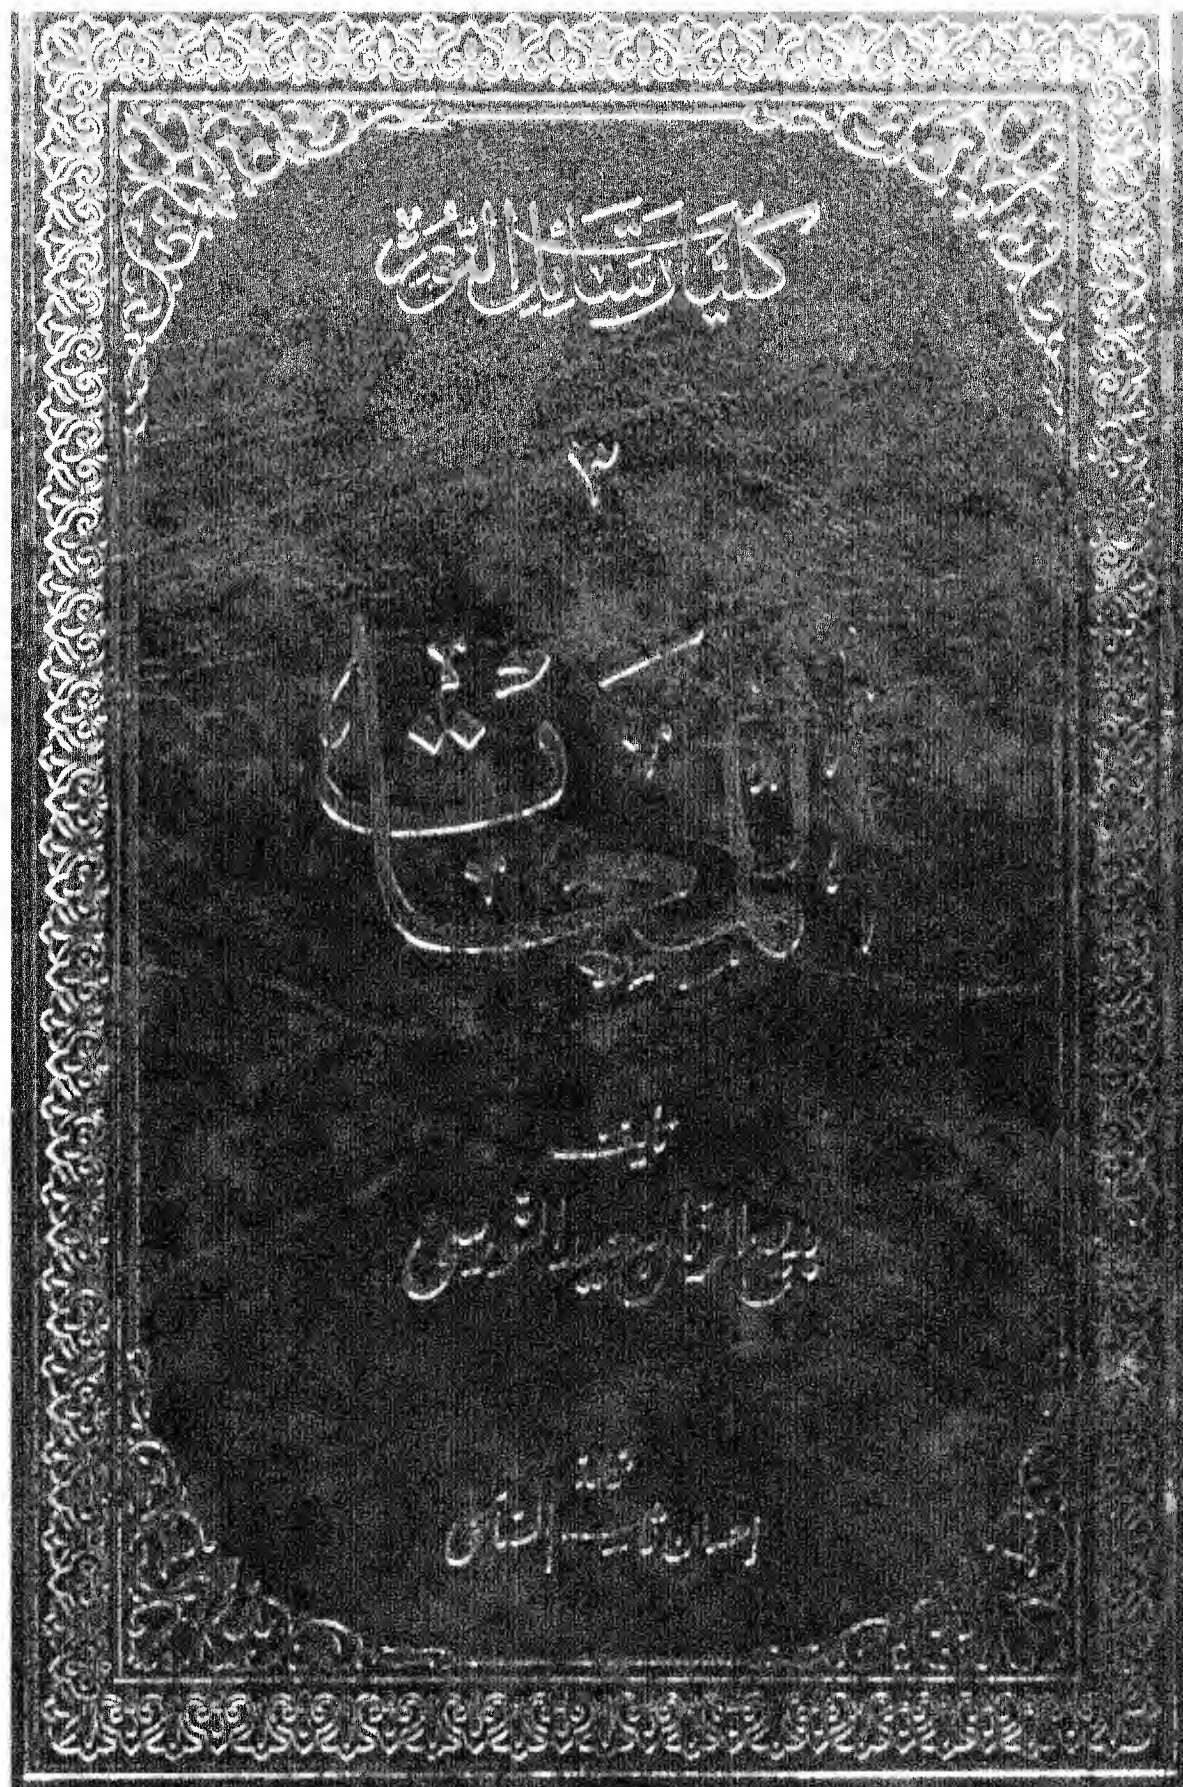 كُلِّيَاتُ رَسَائِلِ النُّورِ
٣
تأليف
بديع الزمان سعيد النورسي
ترجمة
احسان قاسم الصالحي